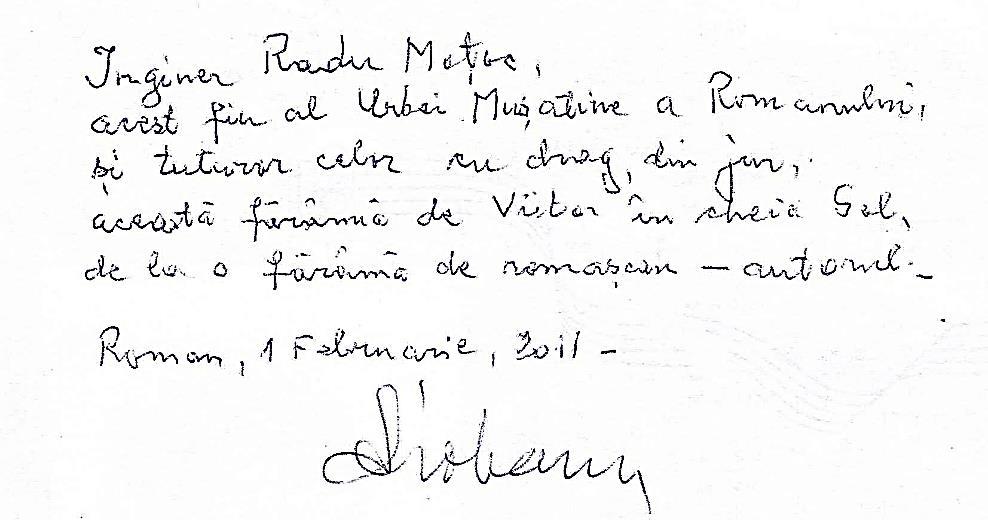 Inginer Radu Moțoc,
acest fiu al Urbei Mușatine a Romanului,
și tuturor celor cu drag, din jur,
această fărâmă de Viitor în cheia Sol,
de la o fărâmă de romașcan – autorul.–
Roman, 1 Februarie, 2011 –